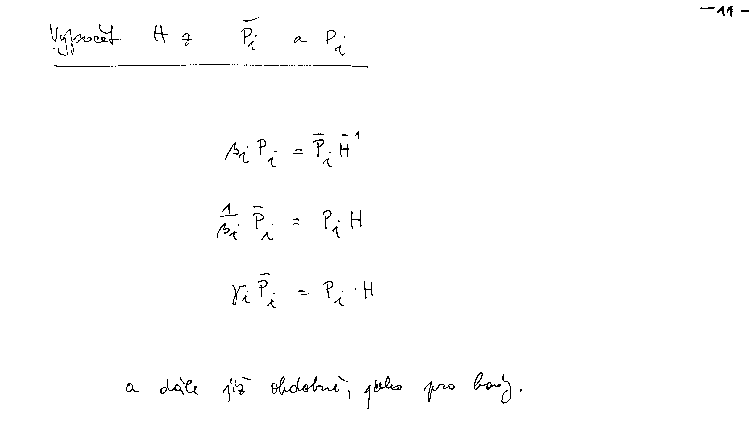 -11-
Výpočet H z P̄i a Pi
βi Pi = P̄i H⁻¹
1/βi P̄i = Pi H
γi P̄i = Pi · H
a dále již obdobně, jako pro body.